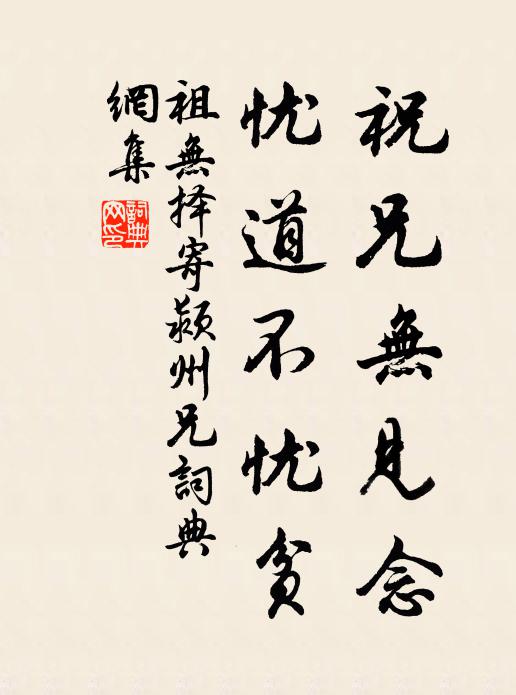 祝兄無見念
忧道不忧貧
祖無择寄颍州兄詞典
網集
詞典網印